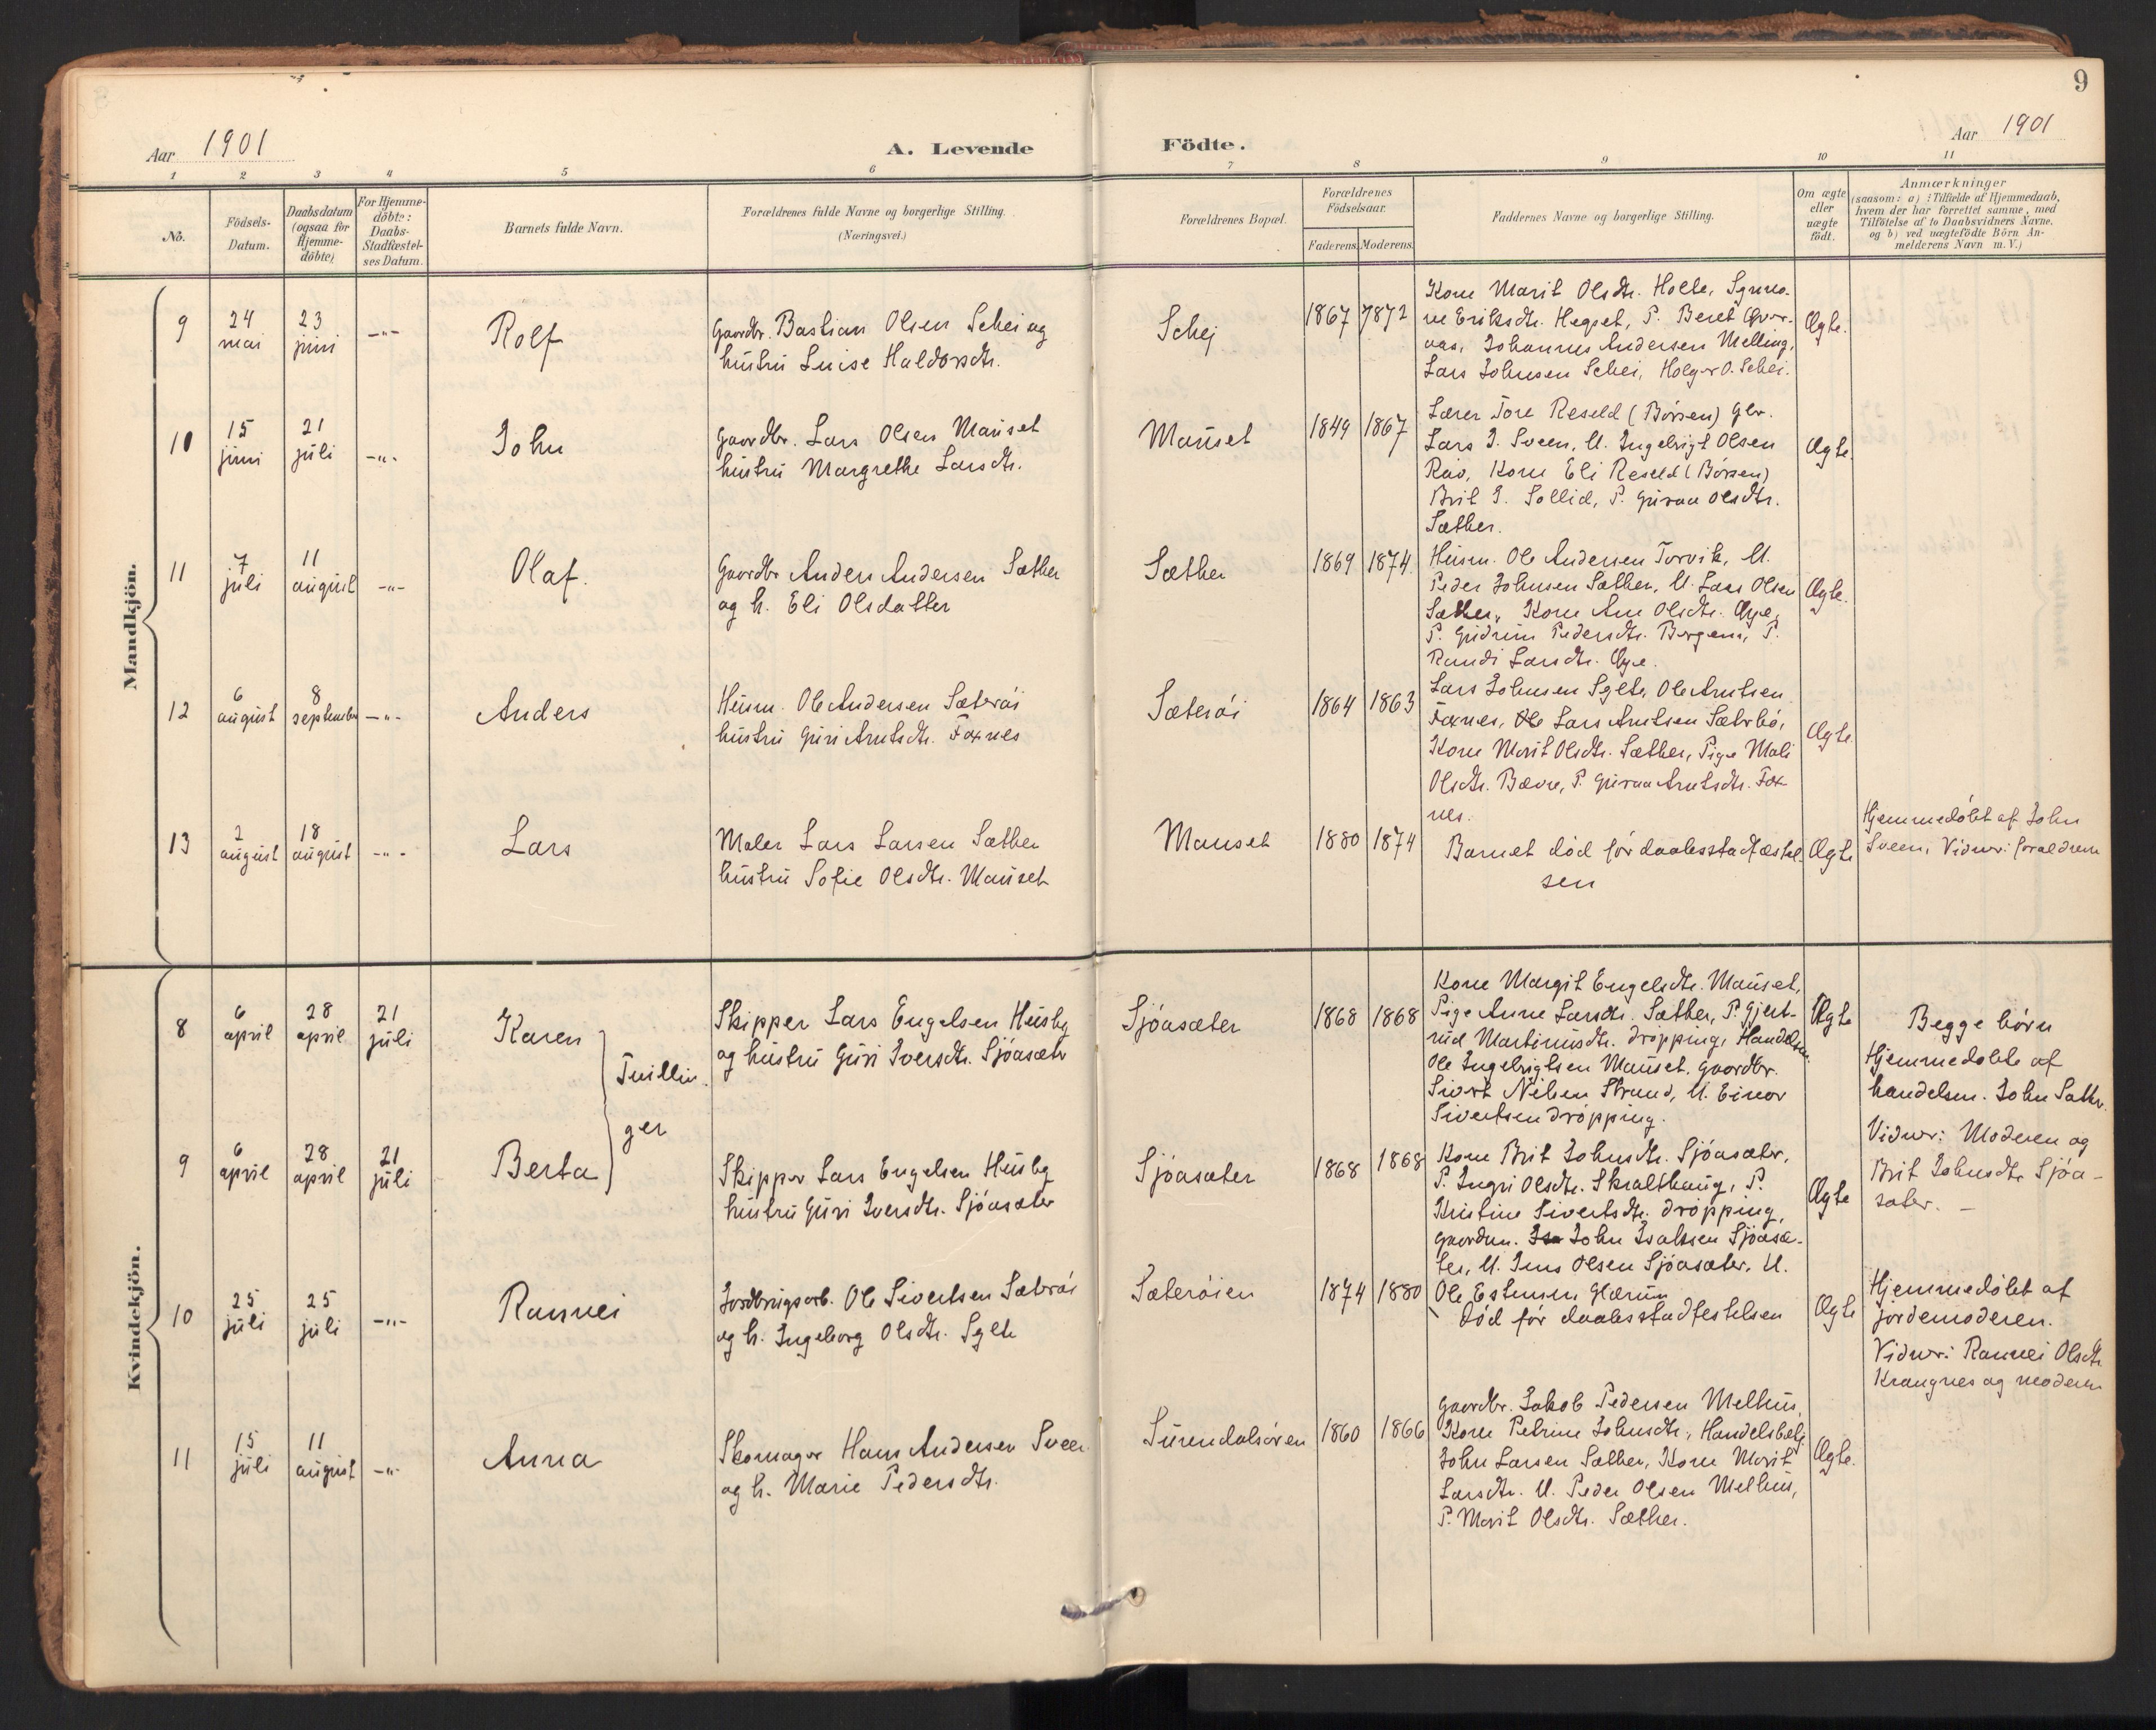 9
Aar 1901
A. Levende Födte.
Aar 1901
1 2 3 4 5 6 7 8 9 10 11
No.
Födsels-
Datum.
Daabsdatum
(ogsaa for
Hjemme-
döbte).
For Hjemme-
döbte:
Daabs-
Stadfæstel-
ses Datum.
Barnets fulde Navn.
Forældrenes fulde Navne og borgerlige Stilling.
(Næringsvei.)
Forældrenes Bopæl.
Forældrenes
Födselsaar.
Faderens. Moderens.
Faddernes Navne og borgerlige Stilling.
Om ægte
eller
uægte
födt.
Anmærkninger
(saasom: a) i Tilfælde af Hjemmedaab,
hvem der har forrettet samme, med
Tilföielse af to Daabsvidners Navne.
og b) ved uægtefödte Börn An-
melderens Navn m. V.)
Mandkjön.
9
24
mai
23
juni
-"-
Rolf
Gaardbr. Bastian Olsen Schei og
hustru Luise Haldorsdtr.
Schej
1867 1872
Kone Marit Olsdtr. Holte, Synno-
ve Eriksdtr. Hegset, P. Beret Qver-
aas, Johannes Andersen Melling,
Lars Johnsen Schei, Holger O. Schei.
Ægte.
10
15
juni
21
juli
-"-
John
Gaardbr. Lars Olsen Mauset
hustru Margrethe Larsdtr.
Mauset
1849 1867
Lærer Tore Reseld (Börsen) Gbr.
Lars J. Sveen, U. Ingebrigt Olsen
Rav, Kone Eli Reseld (Börsen)
Brit J. Sollid, P. Guraa Olsdtr.
Sæther.
Ægte.
11
7
juli
11
august
-"-
Olaf.
Gaardbr Anders Andersen Sæther
og h. Eli Olsdatter
Sæther
1869 1874.
Husm. Ole Andersen Torvik, U.
Peder Johnsen Sæther, U. Lars Olsen
Sæther, Kone Ane Olsdtr. Øye,
P. Gudrun Pedersdtr. Bergem, P.
Randi Larsdtr. Øye.
Ægte.
12
6
august
8
september
-"-
Anders
Husm. Ole Andersen Sæterøi
hustru Guri Arntsdtr. Foxnes
Sæterøi
1864 1863
Lars Johnsen Sylte, Ole Arntsen
Foxnes, Lars Arntsen Sæterbö,
Kone Marit Olsdtr. Sæther, Pige Mali
Olsdtr. Bævre, P. Guraa Arntsdtr. Fox-
nes.
Ægte.
13
2
august
18
august
-"-
Lars
Maler Lars Larsen Sæther
hustru Sofie Olsdtr. Mauset
Mauset
1880 1874
Barnet död för daabsstadfæstel-
sen
Ægte
Hjemmedöbt af John
Sveen, Vidner: forældrene
Kvindekjön.
8
6
april
28
april
21
juli
Karen
Tvillin-
ger
Skipper Lars Engelsen Husby
og hustru Guri Iversdtr. Sjöasæter
Sjöasæter
1868 1868
Kone Margit Engelsdtr. Mauset,
Pige Anne Larsdtr. Sæther, P. Gjert-
rud Martinusdtr. Dröpping, Handelsm.
Ole Ingebrigtsen Mauset. Gaardbr.
Sivert Nilsen Strand, U. Einar
Sivertsen Dröpping.
Ægte
Begge börn
Hjemmedöbte af
handelsm. John Sæther.
Vidner: Moderen og
Brit Johnsdtr. Sjöa-
sæter. -
9
6
april
28
april
21
juli
Berta
Skipper Lars Engelsen Husby
hustru Guri Iversdtr. Sjöasæter
Sjöasæter
1868 1868
Kone Brit Johnsdtr. Sjöasæter,
P. Ingri Olsdtr. Skralthaug, P.
Kristine Sivertsdtr. Dröpping,
Gaardm. John Isaksen Sjöasæ-
ter, U. Jens Olsen Sjöasæter, U.
Ole Estensen Glærum
Ægte
10
25
juli
25
juli
-"-
Rannei
Jordbrugsarb. Ole Sivertsen Sæterøi
og h. Ingeborg Olsdtr. Sylte
Sæterøien
1874 1880
Död för daabsstadfestelsen
Ægte
Hjemmedöbt af
jordemoderen.
Vidner: Rannei Olsdtr.
Krangnes og moderen
11
15
juli
11
august
-"-
Anna
Skomager Hans Andersen Sveen
og h. Marie Pedersdtr.
Surendalsøren
1860 1866
Gaardbr. Jakob Pedersen Melhus,
Kone Petrine Johnsdtr., Handelsbetj.
John Larsen Sæther, Kone Marit
Larsdtr. U. Peder Olsen Melhus,
P. Marit Olsdtr. Sæther.
Ægte.